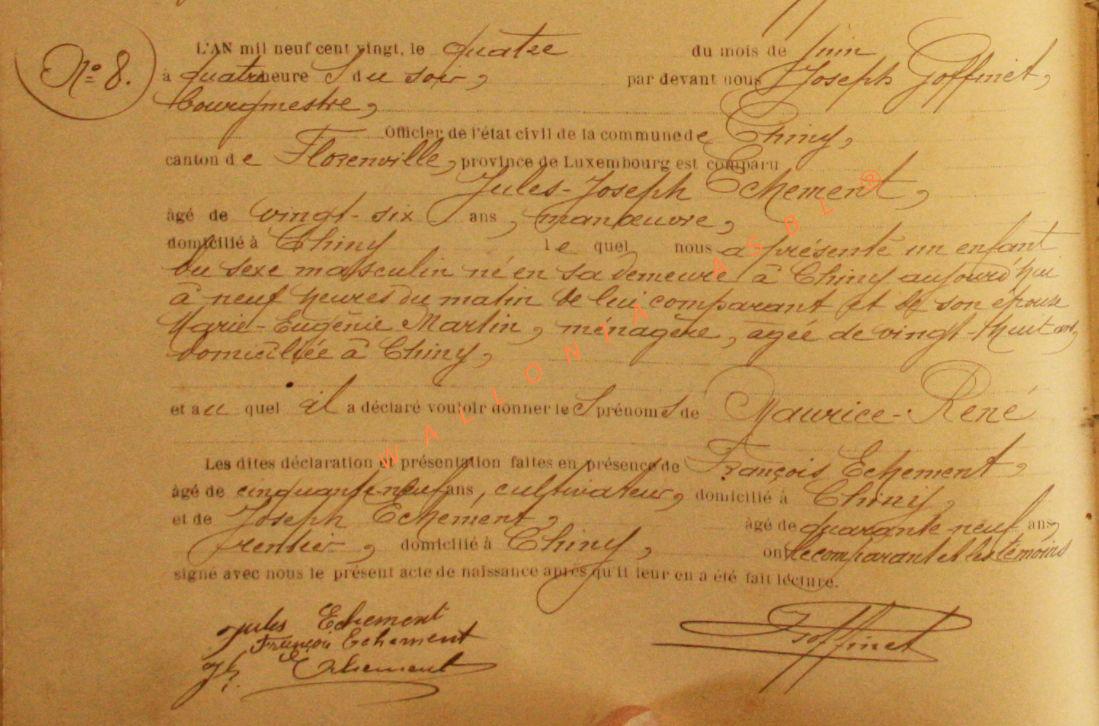 N° 8.
L'AN mil neuf cent vingt, le quatre du mois de juin
à quatre heures du soir, par devant nous Joseph Goffinet,
bourgmestre,
Officier de l'état civil de la commune de Chiny,
canton de Florenville, province de Luxembourg est comparu
Jules-Joseph Echement,
âgé de vingt-six ans, manœuvre,
domicilié à Chiny lequel nous a présenté un enfant
du sexe masculin né en sa demeure à Chiny aujourd'hui
à neuf heures du matin de lui comparant et de son épouse
Marie-Eugénie Martin, ménagère, agée de vingt-huit ans,
domiciliée à Chiny,
et auquel il a déclaré vouloir donner les prénoms de Maurice-René
Les dites déclaration et présentation faites en présence de François Echement,
âgé de cinquante-neuf ans, cultivateur, domicilié à Chiny,
et de Joseph Echement, âgé de quarante-neuf ans,
rentier, domicilié à Chiny, ont le comparant et les témoins
signé avec nous le présent acte de naissance après qu'il leur en a été fait lecture.
Jules Echement
François Echement
Jh. Echement
J Goffinet
WALLONIA ASBL ®